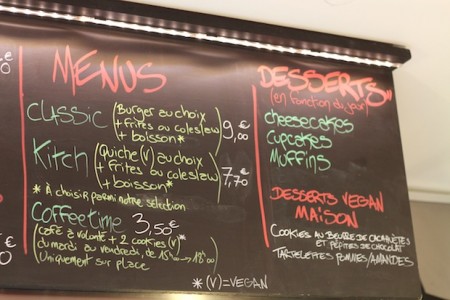 MENUS
CLASSIC (Burger au choix
+ frites ou coleslaw
+ boisson*) 9,00 €
Kitch (Quiche (V) au choix
+ frites ou coleslaw
+ boisson*) 7,70 €
* À choisir parmi notre sélection
Coffee time 3,50€
(café à volonté + 2 cookies (V)*
du mardi au vendredi, de 15h00 → 18h00
Uniquement sur place)
* (V) = VEGAN
DESSERTS
(en fonction du jour)
cheesecakes
cupcakes
Muffins
DESSERTS VEGAN
MAISON
COOKIES AU BEURRE DE CACAHUÈTES
ET PÉPITES DE CHOCOLAT
TARTELETTES POMMES/AMANDES